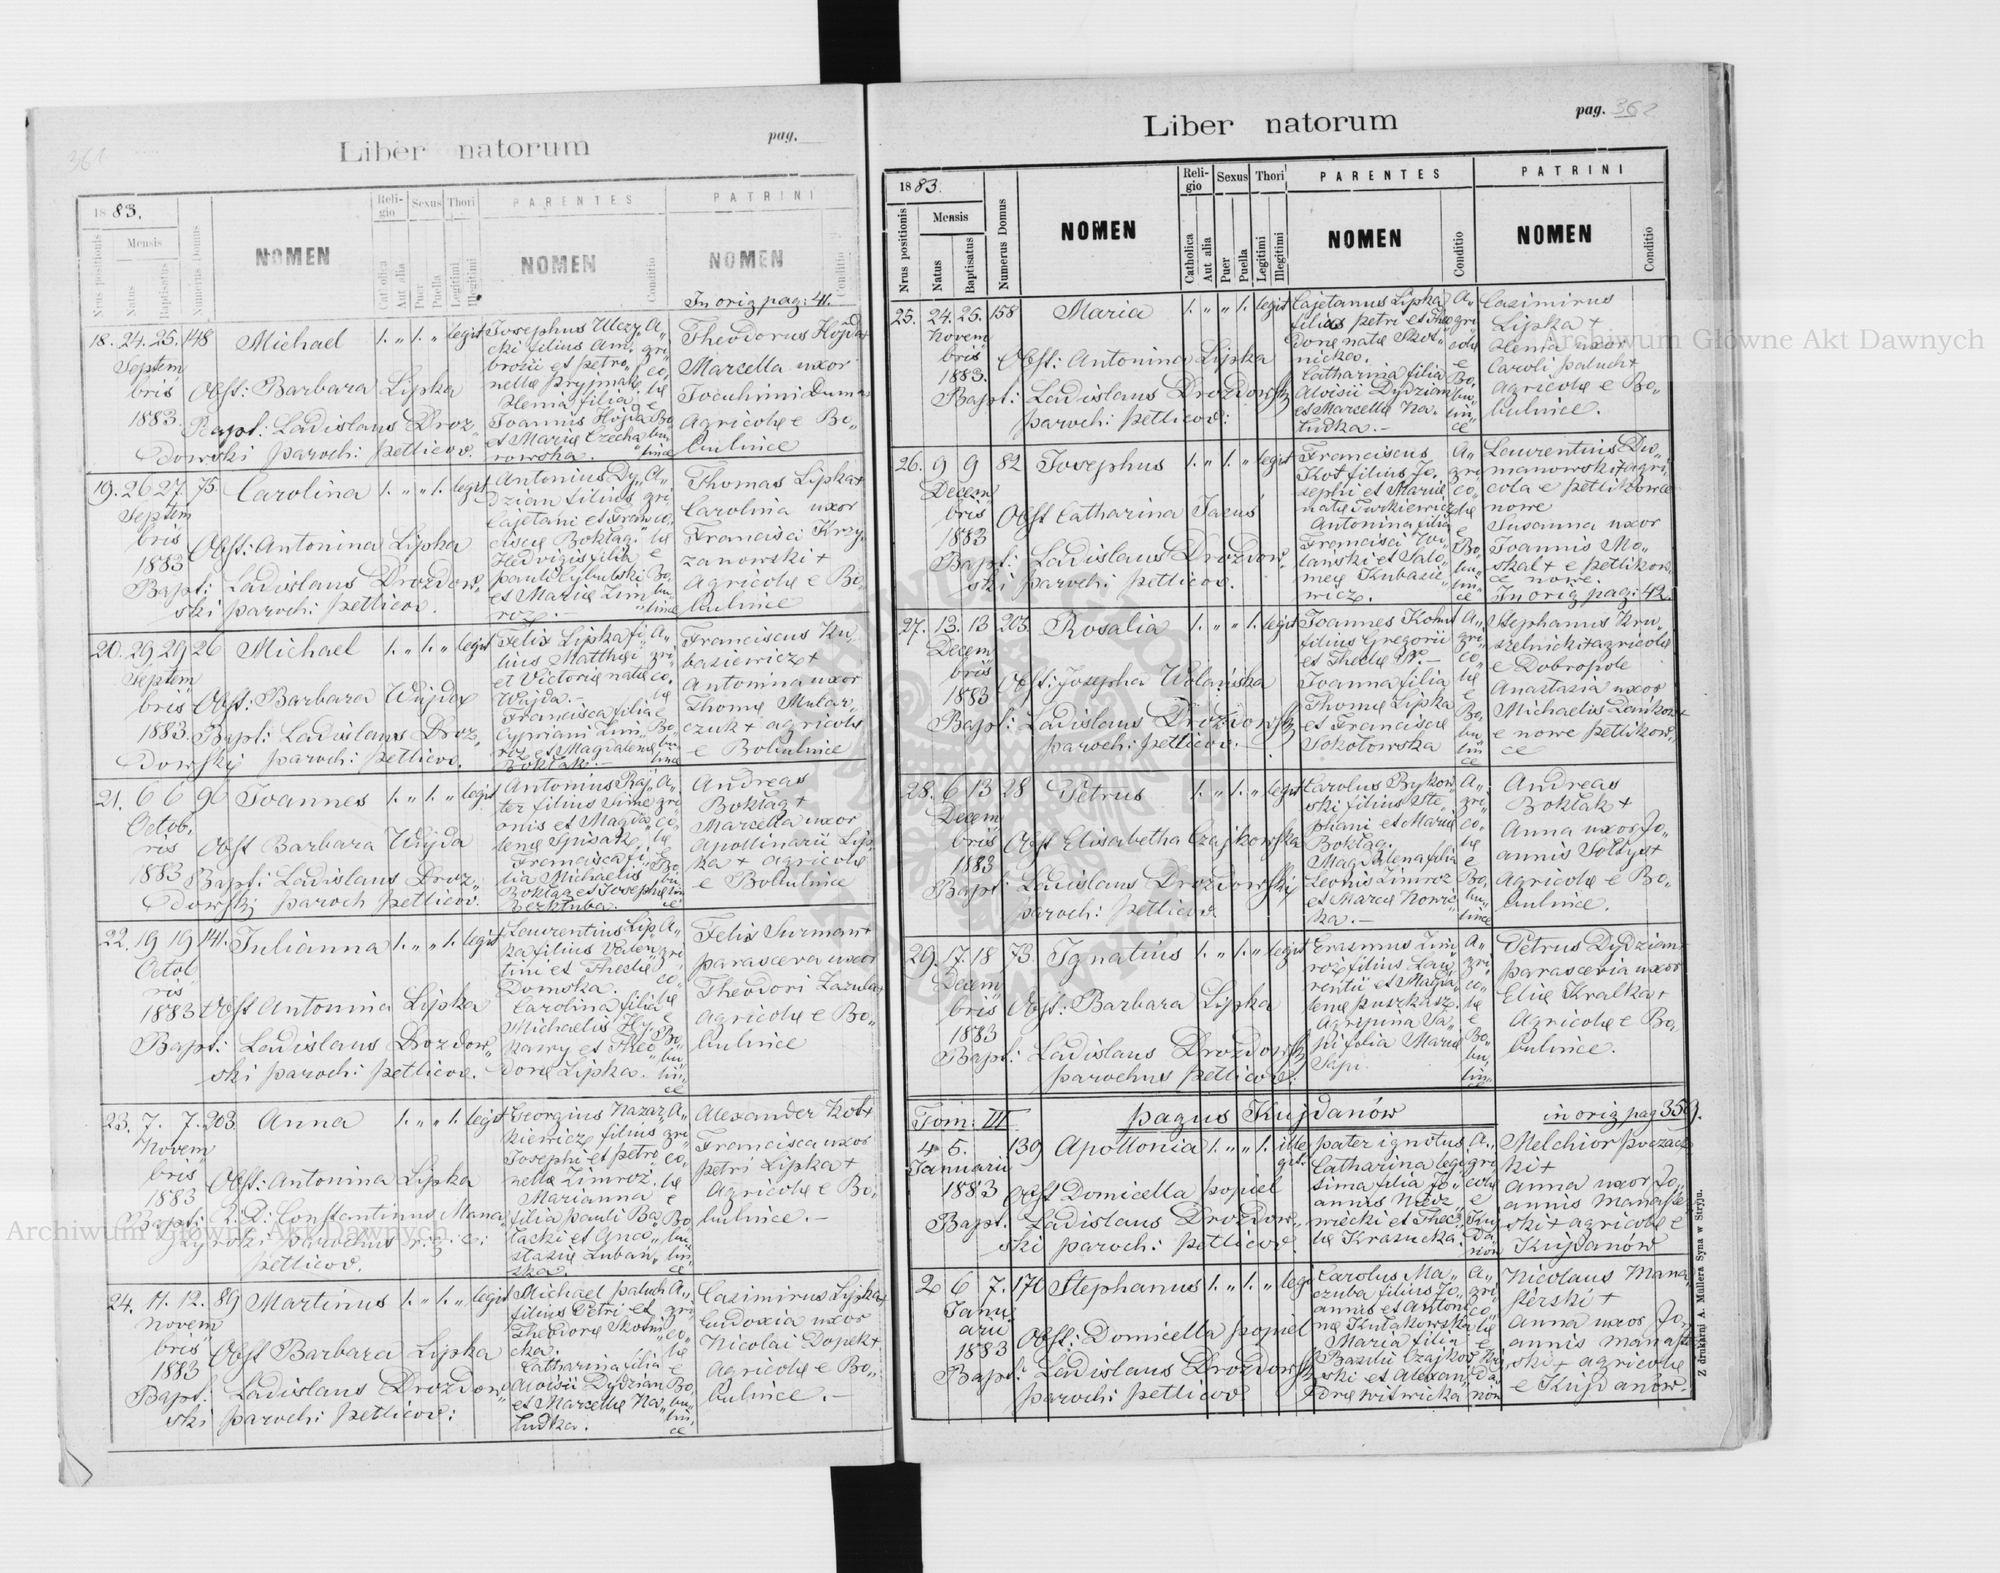 361
Liber natorum
pag.
18 83.
Nrus positionis
Mensis
Natus
Baptisatus
Numerus Domus
NOMEN
Religio
Catholica
Aut alia
Sexus
Puer
Puella
Thori
Legitimi
Illegitimi
PARENTES
NOMEN
Conditio
PATRINI
NOMEN
Conditio
In orig pag: 41.
18. 24. 25. 148 Michael 1. „ 1. „ legit
Septem
bris
1883.
Obst: Barbara Lipka
Bapt: Ladislaus Droz„
dowski paroch: petlicov.
Josephus
cki filius Am„
brosii et petro„
nellę
Xenia filia
Joannis Hojda
et Marię Czecha„
rowska.
A„
gri
co„
lę
e
Bo
bu
lince
Theodorus Hojda+
Marcella uxor
Joachimi Duma
Agricolę e Bo„
bulince
19. 26 27. 75. Carolina 1. „ „ 1. legit
Septem
bris
1883
Obst: Antonina Lipka
Bapt: Ladislaus Drozdow„
ski paroch: petlicov.
Antonius Dy„
dzian filius
Cajetani et Fran
ciscę Boktag.
Hedvigis filia
pauli Cybulski
et Marię Zim„
roz. —
A„
gri
co„
lę
e
Bo„
bu„
lince
Thomas Lipka+
Carolina uxor
Francisci Krzy„
zanowski +
Agricolę e Bo„
bulince
20. 29 29 26 Michael 1. „ 1. „ legit
Septem
bris
1883.
Obst: Barbara Wujda
Bapt: Ladislaus Droz„
dowskij paroch: petlicov.
Felix Lipka fi„
lius Matthęi
et Victorię natę
Wujda. —
Francisca filia
Cypriani Zim„
roz et Magdalenę
Boktak. —
A„
gri
co„
lę
e
Bo„
bu„
lince
Franciscus Ku„
basiewicz +
Antonina uxor
Thomę Mular„
czuk + agricolę
e Bobulince
21. 6 6 90 Joannes 1. „ 1. „ legit
Octob„
ris
1883
Obst Barbara Wujda
Bapt: Ladislaus Droz„
dowskij paroch petlicov.
Antonius Raj„
ter filius Sime„
onis et Magda„
lenę Spisak
Francisca fi„
lia Michaelis
Boktag et Josephę
A„
gri
co„
lę
e
Bo„
bu
lin
ce
Andreas
Boktag +
Marcella uxor
Apollinarii Lip„
ka + agricolę
e Bobulince
22. 19 19 141. Julianna 1. „ „ 1. legit
Octob
ris
1883
Obst Antonina Lipka
Bapt: Ladislaus Drozdow„
ski paroch: petlicov.
Laurentius Lip„
ka filius Valen„
tini et Theclę
Domska.
Carolina filia
Michaelis Hry„
kawy et Theo„
dorę Lipka.
A„
gri„
co„
lę
e
Bo„
bu„
lin„
ce
Felix Surman+
parasceva uxor
Theodori Zazula+
Agricolę e Bo„
bulince
23. 7. 7. 203. Anna 1. „ „ 1. legit
Novem
bris
1883
Obst: Antonina Lipka
Bapt: R: D: Constantinus Mana„
parochus r: g: c:
petlicov.
Georgius Nazar„
kiewicz filius
Josephi et petro„
nellę Zimroz.
Marianna
filia pauli Ba„
lacki et Ana„
stasię Luban„
ska.
A„
gri
co„
lę
e
Bo„
bu„
lin„
ce
Alexander Kot+
Francisca uxor
petri Lipka +
Agricolę e Bo„
bulince. —
24. 11. 12. 89 Martinus 1. „ 1. „ legit
Novem
bris
1883
Obst Barbara Lipka
Bapt: Ladislaus Drozdow„
ski paroch: petlicov:
Michael paluch
filius Petri et
Theodorę Skotni„
cka.
Catharina filia
Aloisii Dydzian
et Marcellę Ka„
ludka.
A„
gri
co„
lę
e
Bo„
bu„
lin„
ce
Casimirus Lipka+
Eudoxia uxor
Nicolai Dopek+
Agricolę e Bo„
bulince. —
Liber natorum
pag. 362
18 83.
Nrus positionis
Mensis
Natus
Baptisatus
Numerus Domus
NOMEN
Religio
Catholica
Aut alia
Sexus
Puer
Puella
Thori
Legitimi
Illegitimi
PARENTES
NOMEN
Conditio
PATRINI
NOMEN
Conditio
25. 24. 25. 158 Maria 1. „ „ 1. legit
Novem
bris
1883.
Obst: Antonina Lipka
Bapt: Ladislaus Drozdowskij
paroch: petlicov:
Cajetanus Lipka
filius petri et Theo
dorę natę Skot„
nicka.
Catharina filia
Aloisii Dydzian
et Marcellę Ka„
ludka. —
A„
gri
colę
e
Bo„
bu„
lin„
ce
Casimirus
Lipka +
Xenia uxor
Caroli paluch+
Agricolę e Bo„
bulince.
26. 9 9 82 Josephus 1. „ 1. „ legit
Decem
bris
1883
Obst Catharina Jacuś
Bapt: Ladislaus Drozdow„
ski paroch: petlicov.
Franciscus
Kot filius Jo„
sephi et Marię
natę Turkiewicz
Antonina filia
Francisci Wo„
lański et Salo„
meę Kubasie„
wicz.
A„
gri
co„
lę
e
Bo„
bu„
lin„
ce
Laurentius Du„
manowski + agri„
cola e petlikowce
nowe
Susanna uxor
Joannis Mo„
skal + e petlikow„
ce nowe.
In orig pag: 42.
27. 13. 13 203. Rosalia 1. „ „ 1. legit
Decem
bris
1883
Obst: Josepha Wolańska
Bapt: Ladislaus Drozdowskij
paroch: petlicov.
Joannes Kohut
filius Gregorii
et Theclę N. —
Joanna filia
Thomę Lipka
et Franciscę
Sokołowska
A„
gri
co„
lę
e
Bo„
bu
lin
ce
Stephanus Kru„
szelnicki + agricola
e Dobropole
Anastasia uxor
Michaelis Zankow+
e nowe petlikow„
ce
28. 6 13 28 Petrus 1. „ 1. „ legit
Decem
bris
1883
Obst Elisabetha Czajkowska
Bapt: Ladislaus Drozdowskij
paroch: petlicov
Carolus Bykow„
ski filius Ste„
phani et Marię
Boktag.
Magdalena filia
Leonis Zimroz
et Marię Nowic„
ka. —
A„
gri
co„
lę
e
Bo„
bu„
lince
Andreas
Boktak +
Anna uxor Jo„
annis Sołtys+
Agricolę e Bo„
bulince.
29. 17. 18 73. Ignatius 1. „ 1. „ legit
Decem
bris
1883
Obst: Barbara Lipka
Bapt: Ladislaus Drozdowskij
parochus petlicov:
Erasmus Zim„
roz filius Lau„
rentii et Magda„
lenę puszkasz.
Agripina Sa„
pi filia Marię
Sapi.
A„
gri
co„
lę
e
Bo„
bu„
lin„
ce
Petrus Dydzian
parascevia uxor
Elię Kralka+
Agricolę e Bo„
bulince.
Tom: III
pagus Kujdanów
in orig pag 359.
4 5. 139 Apollonia 1. „ „ 1. ille
git.
Januarii
1883
Obst Domicella popiel
Bapt. Ladislaus Drozdow„
ski paroch: petlicov.
pater ignotus
Catharina legi
tima filia Jo„
annis Niedz„
wiecki et Thec„
lę Krasucka.
A„
gri
colę
e
Kuj
da
nów
Melchior poczac
ki+
Anna uxor Jo„
annis Manaste
rski + agricolę e
Kujdanów
2 6 7. 170 Stephanus 1. „ 1. „ legi
Janu
arii
1883
Obst: Domicella popiel
Bapt: Ladislaus Drozdowskij
paroch: petlicov.
Carolus Ma„
czuba filius Jo„
annis et Antoni
nę Kulakowska
Maria filia
Basilii Czajkow
ski et Alexan„
drę witwicka
A„
gri
co„
lę
e
Kuj
da
nów
Nicolaus Mana„
sterski +
Anna uxor Jo„
annis Manaste
rski + agricolę
e Kujdanów.
Z drukarni A. Müllera Syna w Stryju.
Archiwum Główne Akt Dawnych
Archiwum Główne Akt Dawnych